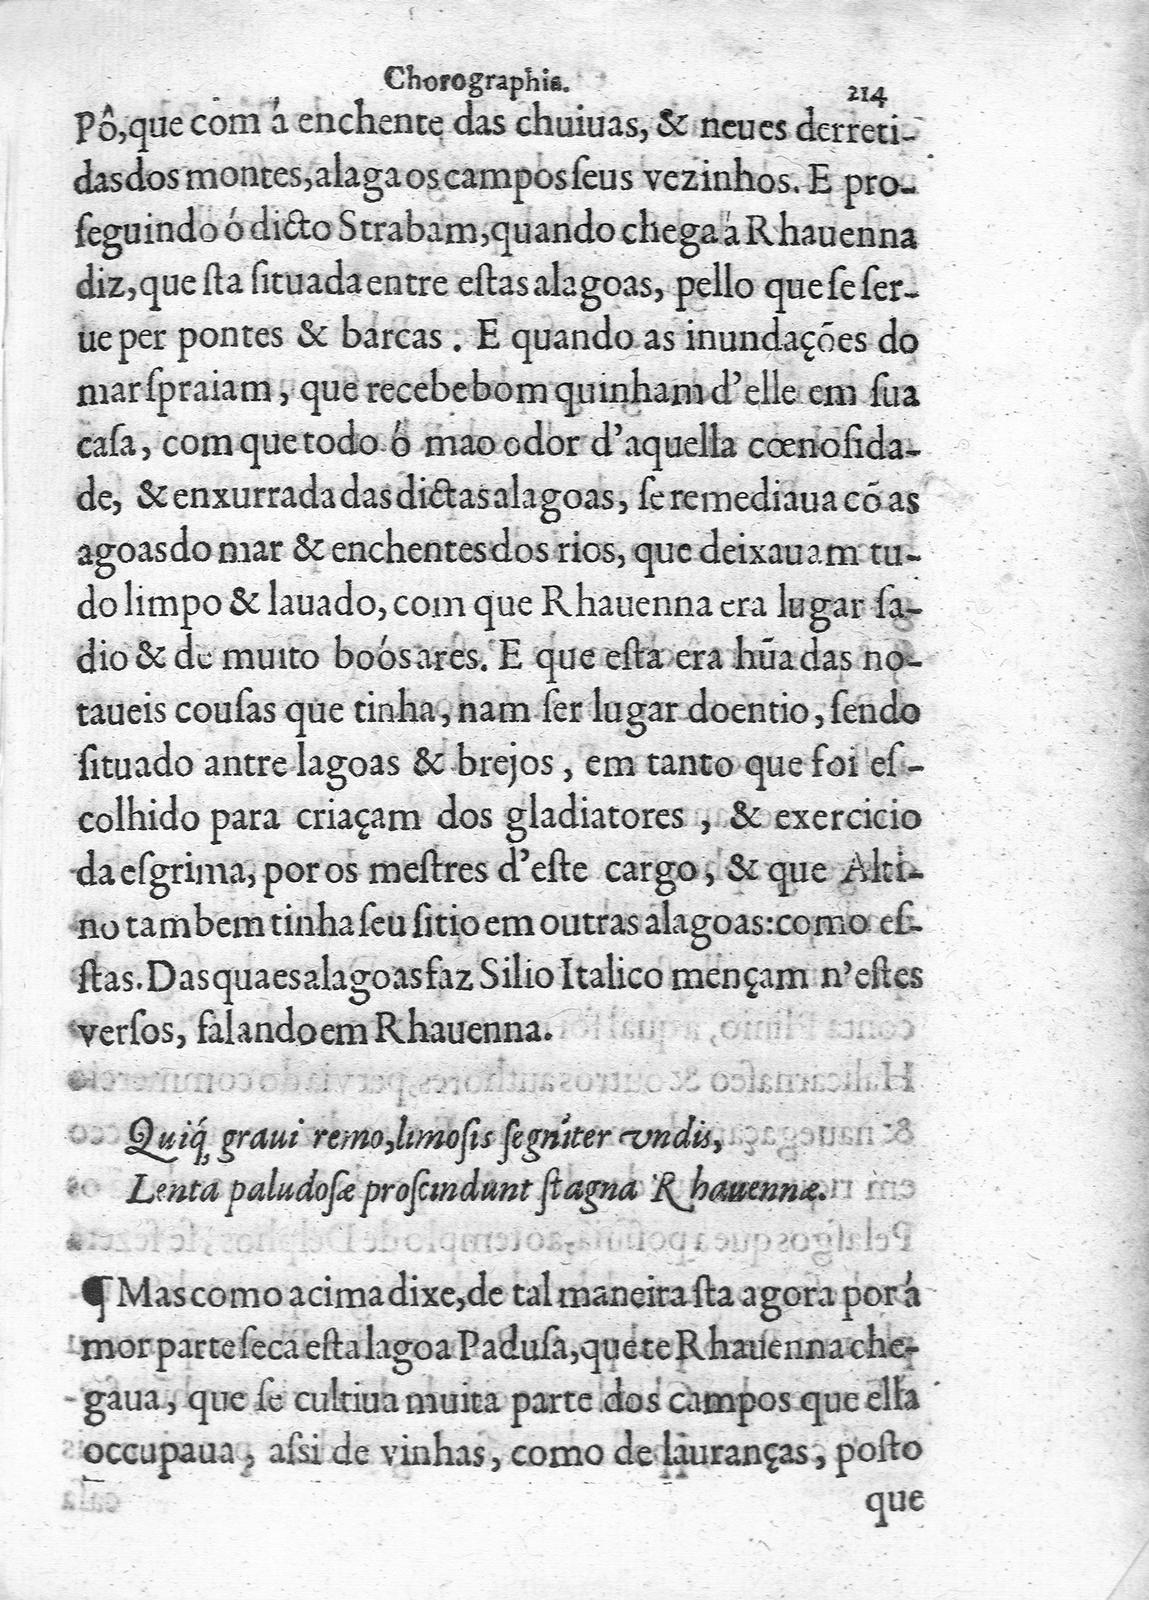 Chorographia.
214
Pô, que com á enchente das chuiuas, & neues derreti-
das dos montes, alaga os campos ſeus vezinhos. E pro-
ſeguindo ó dicto Strabam, quando chega á Rhauenna
diz, que ſta ſituada entre eſtas alagoas, pello que ſe ſer-
ue per pontes & barcas. E quando as inundações do
mar ſpraiam, que recebe bom quinham d'elle em ſua
caſa, com que todo ó mao odor d'aquella cœnoſida-
de, & enxurrada das dictas alagoas, ſe remediaua cõ as
agoas do mar & enchentes dos rios, que deixauam tu-
do limpo & lauado, com que Rhauenna era lugar ſa-
dio & de muito boós ares. E que eſta era hũa das no-
taueis couſas que tinha, nam ſer lugar doentio, ſendo
ſituado antre lagoas & brejos, em tanto que foi eſ-
colhido para criaçam dos gladiatores, & exercicio
da eſgrima, por os meſtres d'eſte cargo, & que Alti-
no tambem tinha ſeu ſitio em outras alagoas: como eſ-
ſtas. Das quaes alagoas faz Silio Italico mençam n'eſtes
verſos, falando em Rhauenna.
Quiq́; graui remo, limoſis ſegniter vndis,
Lenta paludoſæ proſcindunt ſtagna Rhauennæ.
¶ Mas como acima dixe, de tal maneira ſta agora por á
mor parte ſeca eſta lagoa Paduſa, que te Rhauenna che-
gaua, que ſe cultiua muita parte dos campos que ella
occupaua, aſsi de vinhas, como de lauranças, poſto
que